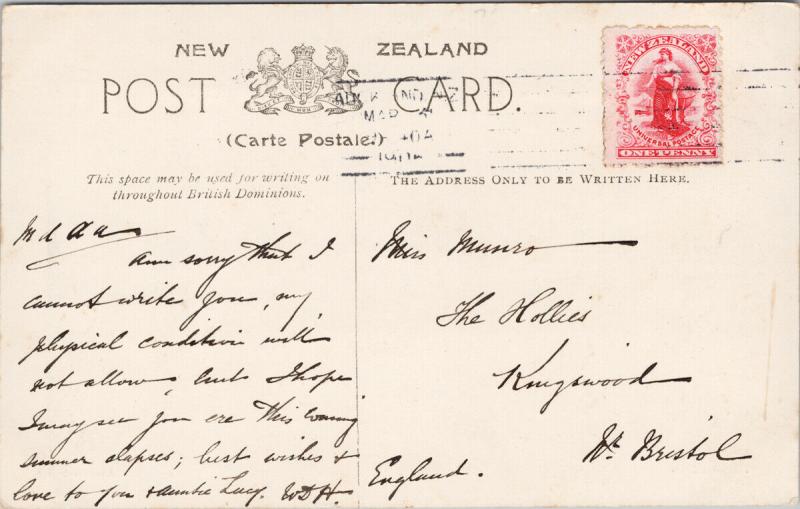 NEW ZEALAND
POST CARD.
(Carte Postale.)
This space may be used for writing on
throughout British Dominions.
THE ADDRESS ONLY TO BE WRITTEN HERE.
NEW ZEALAND
UNIVERSAL POSTAGE
ONE PENNY
MAR
04
M d a a
am sorry that I
cannot write you, my
physical condition will
not allow, but I hope
I may see you ere this coming
summer elapses; best wishes &
love to you & auntie Lucy. WDH.
Miss Munro
The Hollies
Kingswood
Nr. Bristol
England.